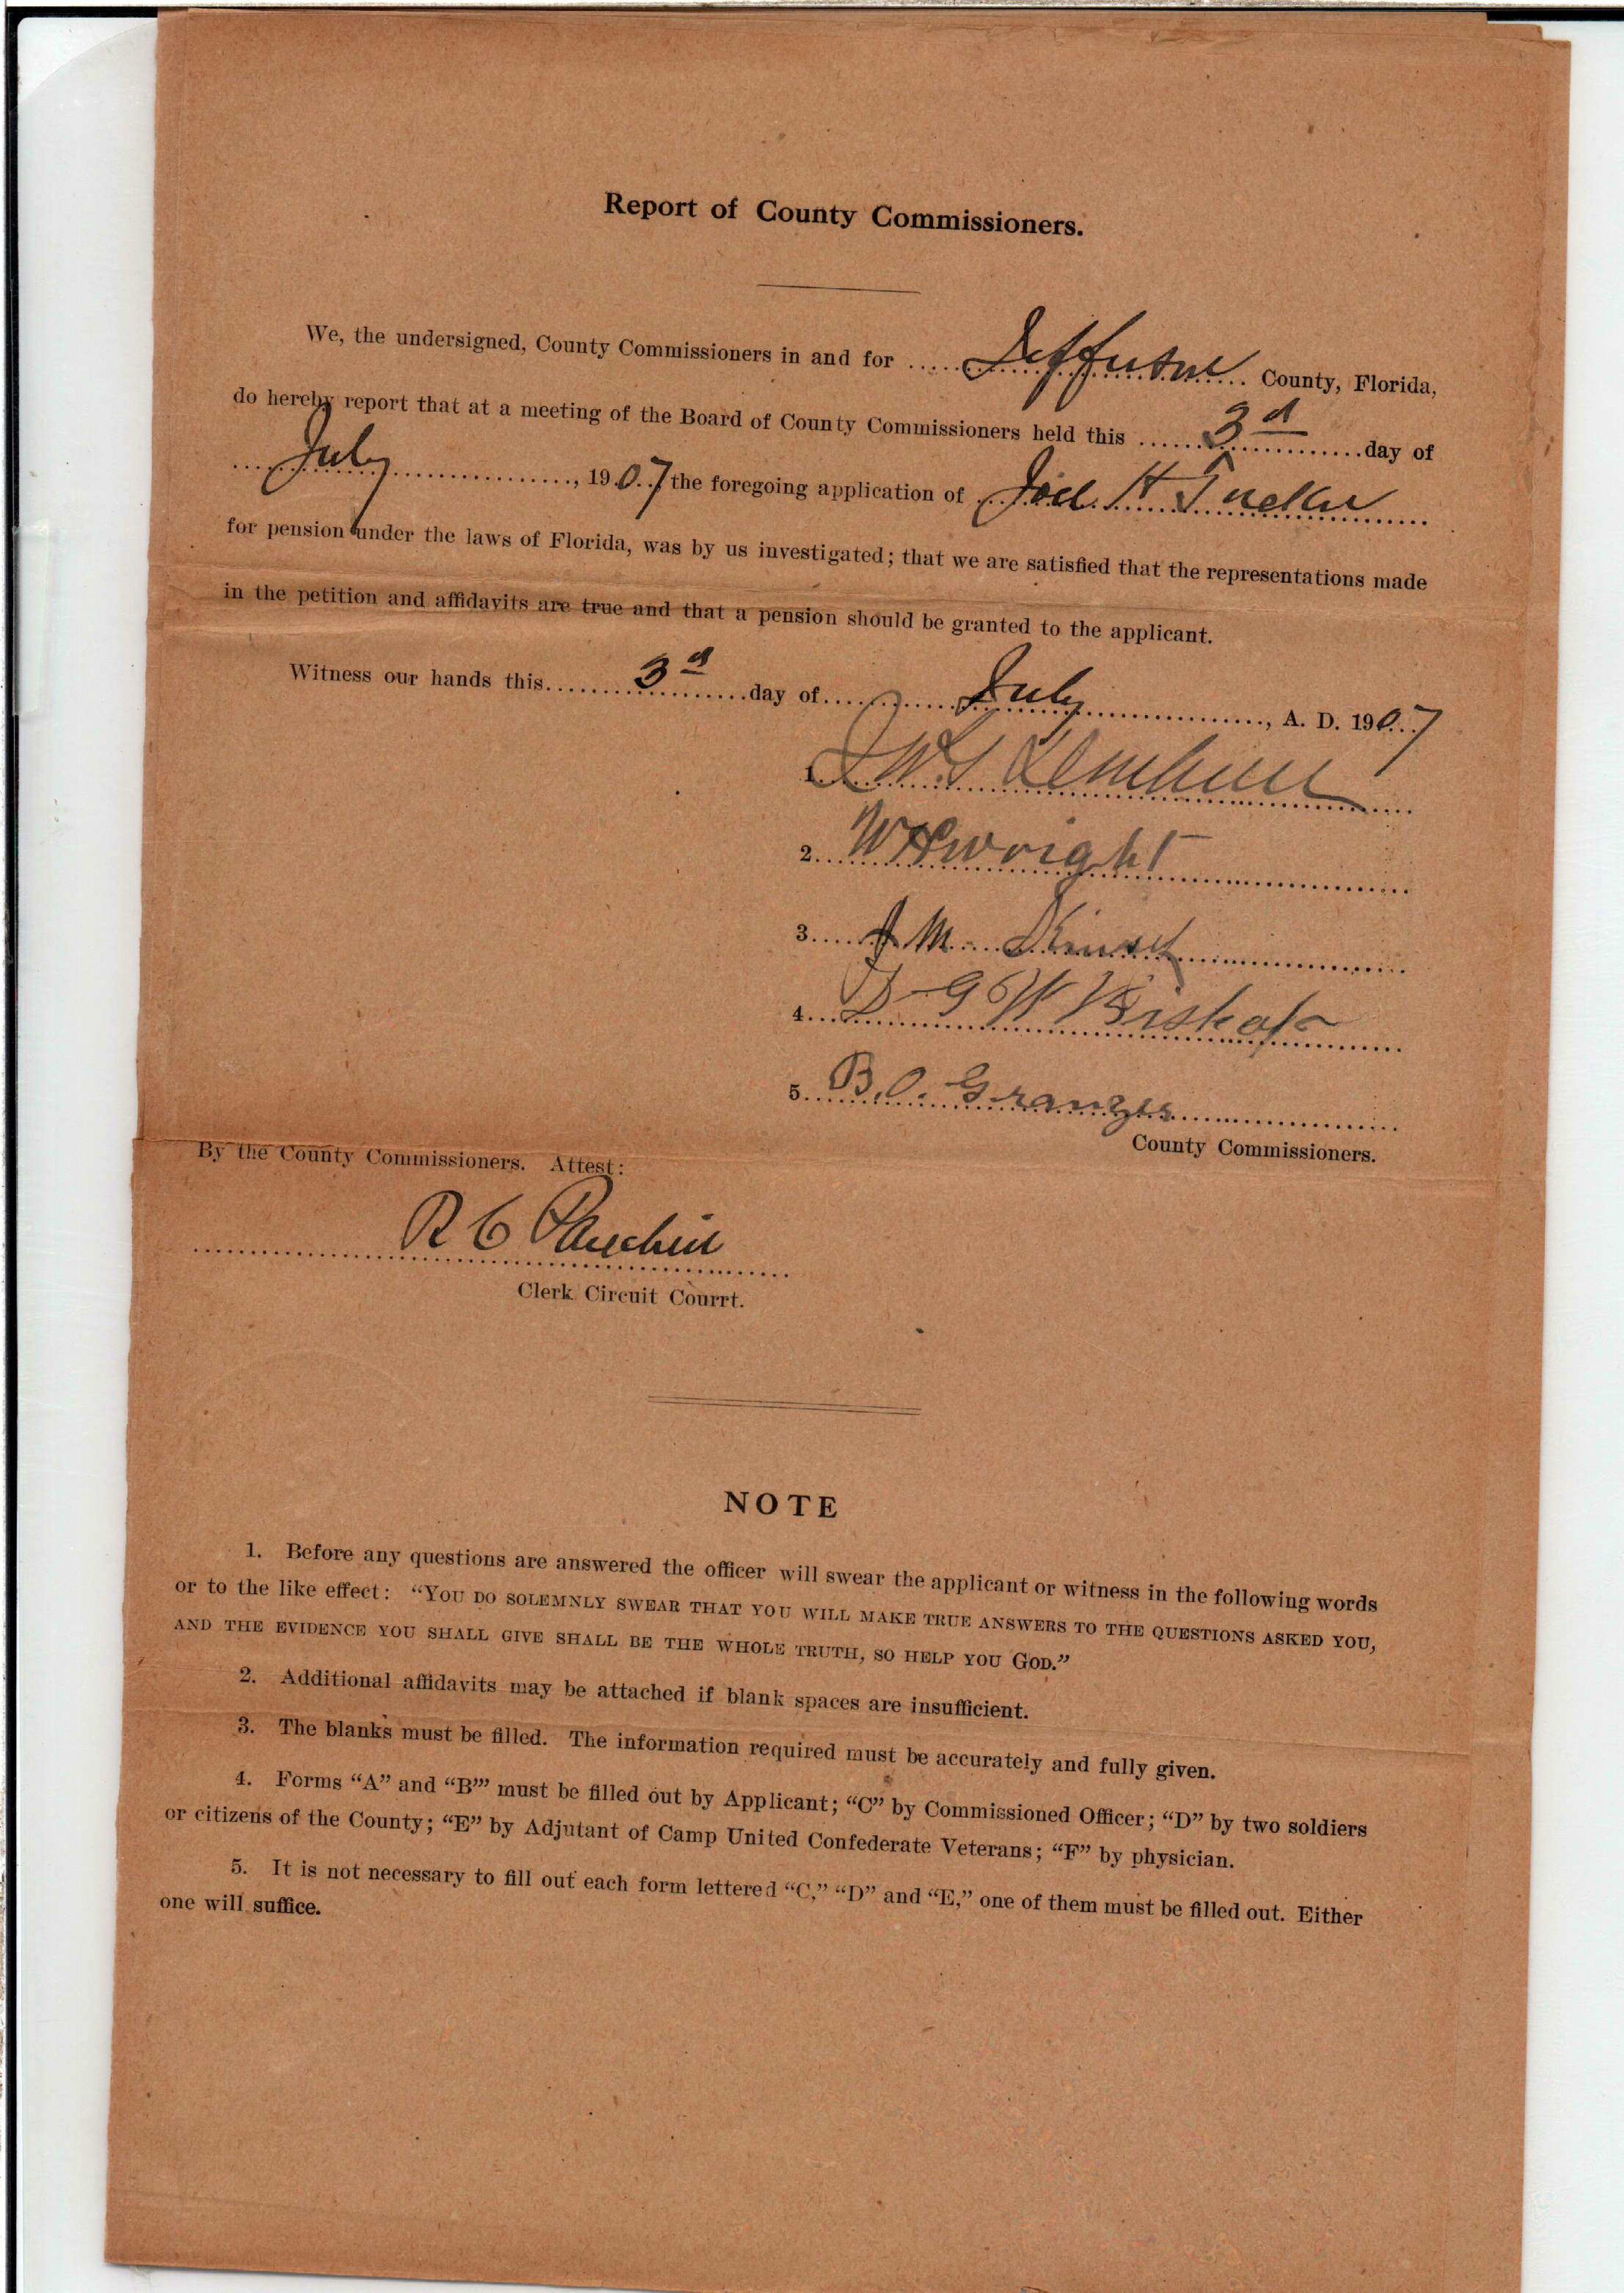 Report of County Commissioners.
We, the undersigned, County Commissioners in and for ..... Jefferson ... County, Florida,
do hereby report that at a meeting of the Board of County Commissioners held this ...... 3d ...... day of
.... July ................, 1907 the foregoing application of Joel H Tucker
for pension under the laws of Florida, was by us investigated; that we are satisfied that the representations made
in the petition and affidavits are true and that a pension should be granted to the applicant.
Witness our hands this ....... 3d ....... day of ....... July ................, A. D. 1907
1.
2. W H Wright
3. J M
4. G W Bishop
5. B. O. Granger
County Commissioners.
By the County Commissioners. Attest:
R C
Clerk Circuit Courrt.
NOTE
1. Before any questions are answered the officer will swear the applicant or witness in the following words
or to the like effect: “YOU DO SOLEMNLY SWEAR THAT YOU WILL MAKE TRUE ANSWERS TO THE QUESTIONS ASKED YOU,
AND THE EVIDENCE YOU SHALL GIVE SHALL BE THE WHOLE TRUTH, SO HELP YOU GOD.”
2. Additional affidavits may be attached if blank spaces are insufficient.
3. The blanks must be filled. The information required must be accurately and fully given.
4. Forms “A” and “B”’ must be filled out by Applicant; “C” by Commissioned Officer; “D” by two soldiers
or citizens of the County; “E” by Adjutant of Camp United Confederate Veterans; “F” by physician.
5. It is not necessary to fill out each form lettered “C,” “D” and “E,” one of them must be filled out. Either
one will suffice.